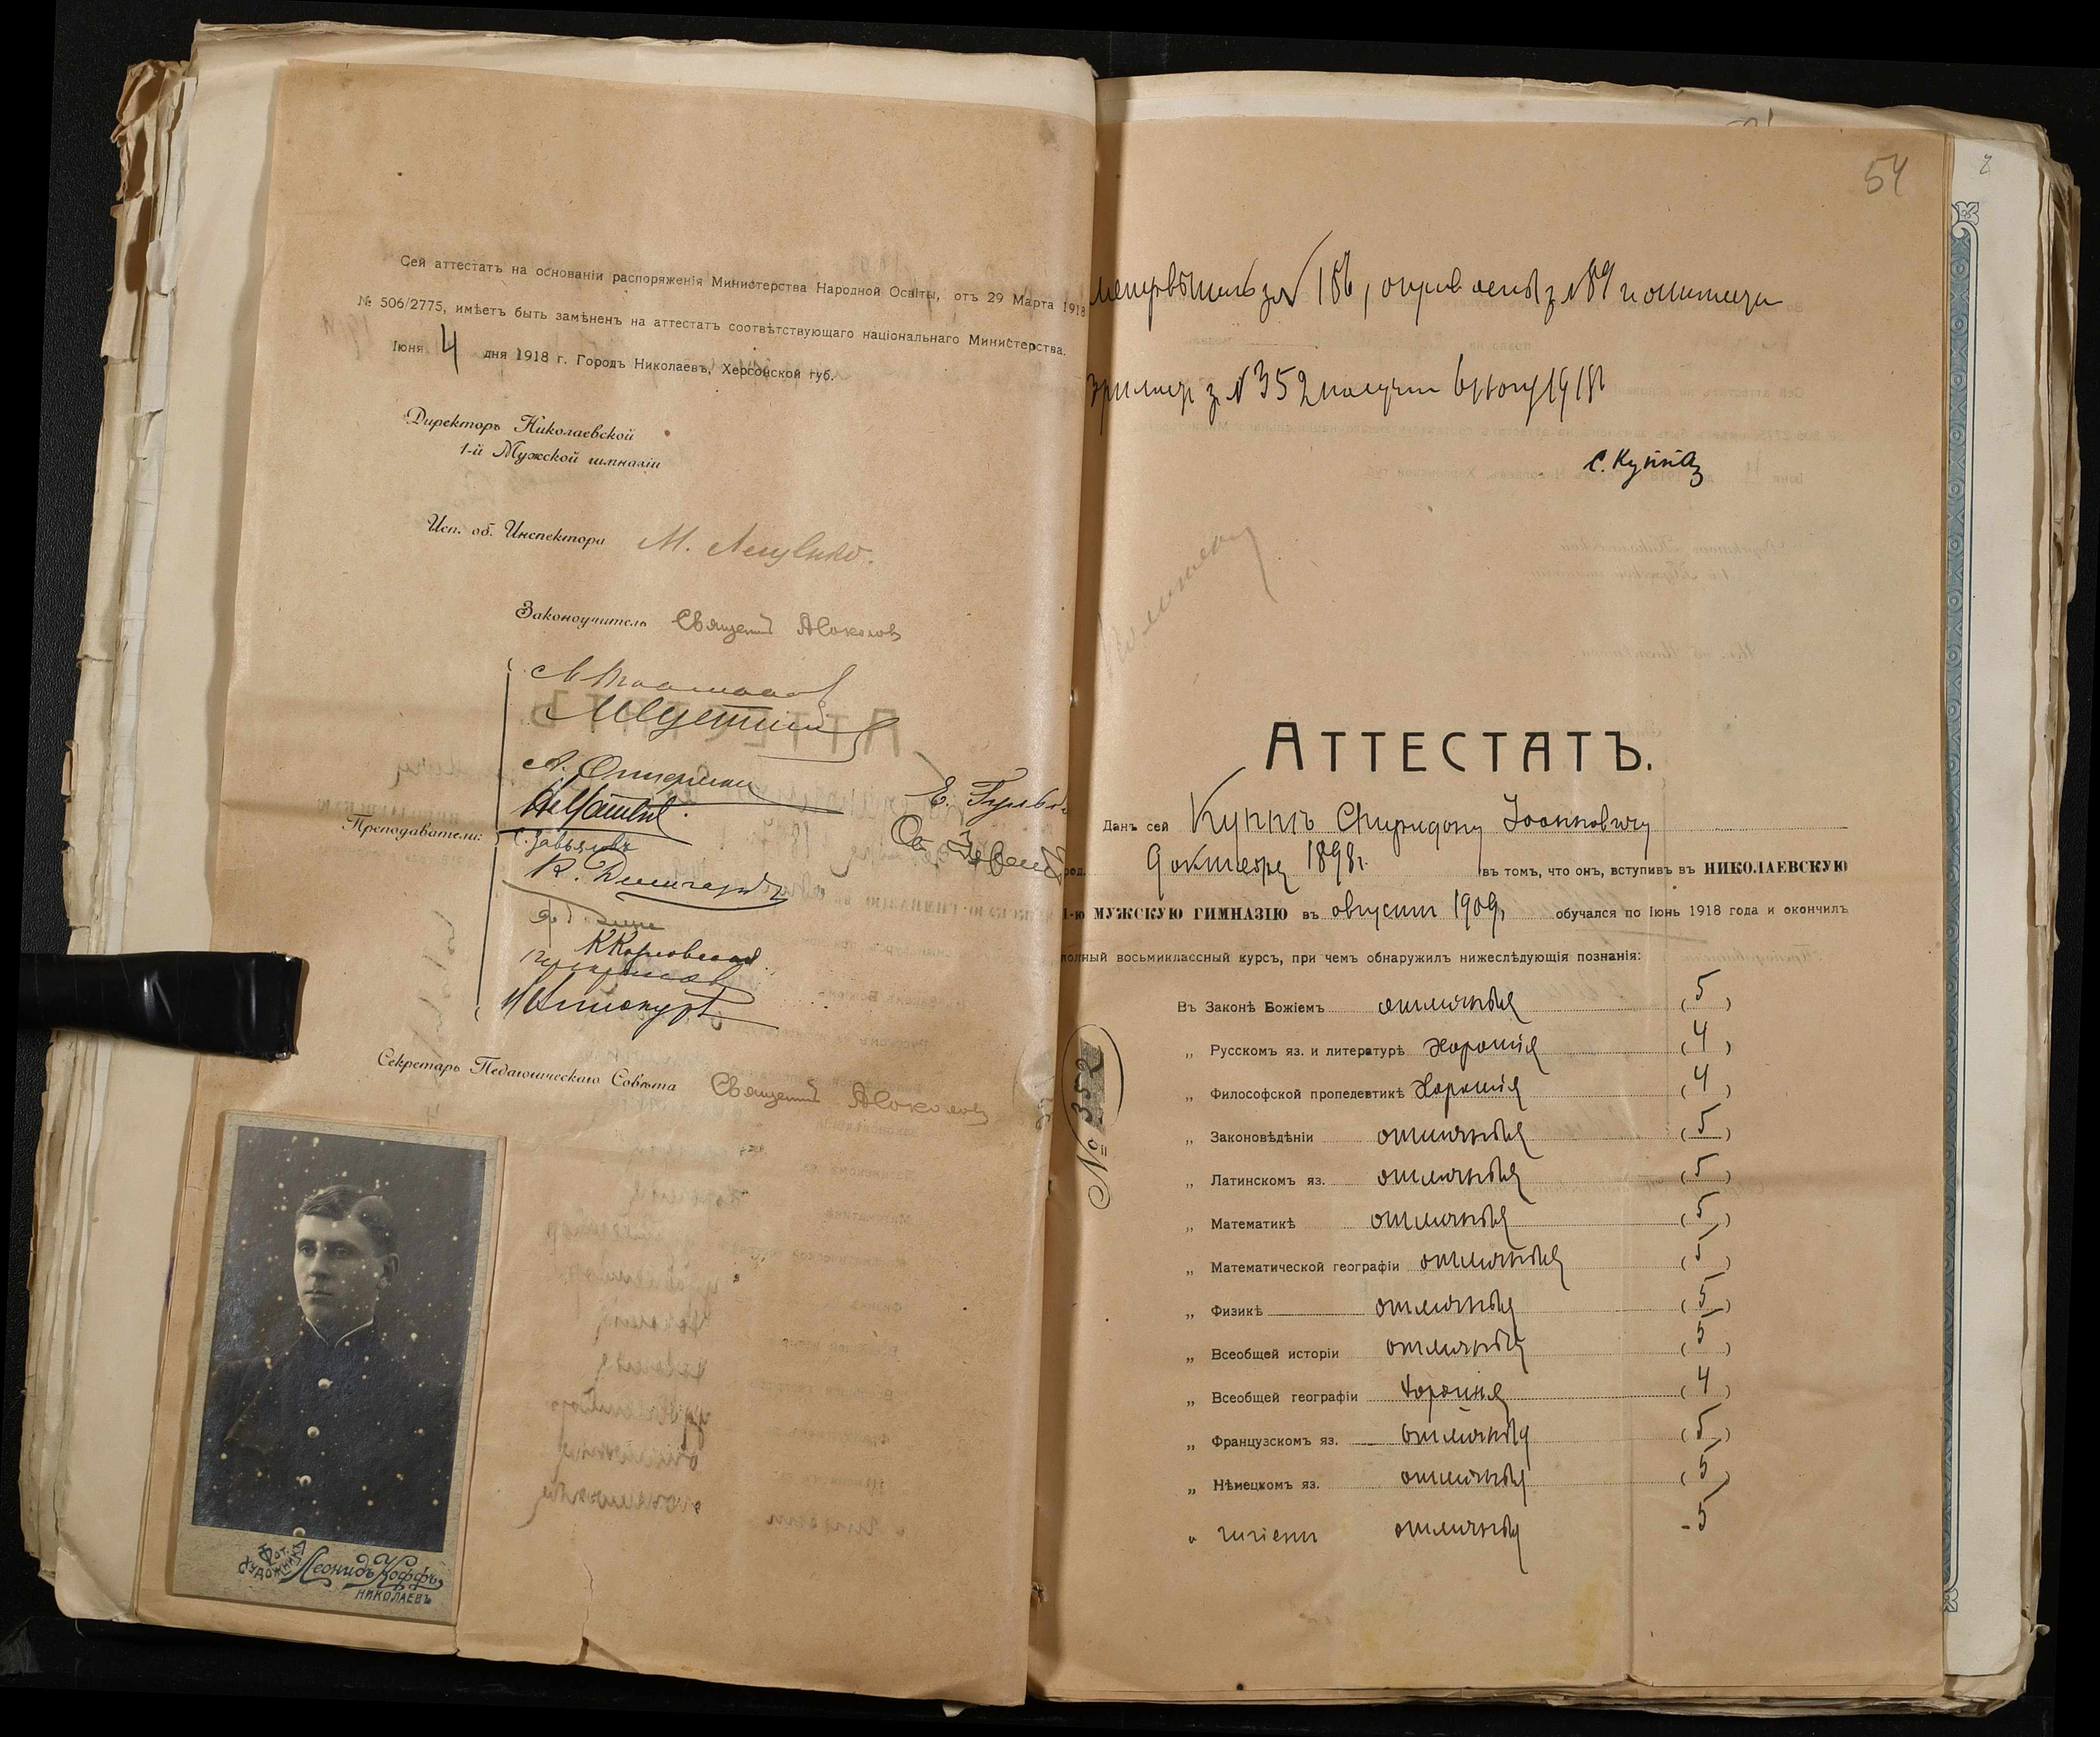 Сей аттестатъ на основаніи распоряженія Министерства Народной Освіты, отъ 29 Марта 1918
№ 506/2775, имѣетъ быть замѣненъ на аттестатъ соотвѣтствующаго національнаго Министерства.
Іюня 4 дня 1918 г. Городъ Николаевъ, Херсонской губ.
Директоръ Николаевской
1-й Мужской гимназіи
Исп. об. Инспектора
Законоучитель Священник А Соколов
Преподаватели:
А.
С. Завьялов
К.
Е.
Св.
Секретарь Педагогическаго Совѣта Священник А Соколов
Фот.
Художника
Леонидъ Коффъ
Николаевъ
54
за № 186, за № 89 и
за № 352 получил 6 июня 1918
С. Куппа
АТТЕСТАТЪ.
Данъ сей Куппъ Спиридону Іоанновичу
род. 9 октября 1898 г. въ томъ, что онъ, вступивъ въ НИКОЛАЕВСКУЮ
1-ю МУЖСКУЮ ГИМНАЗІЮ въ августе 1909, обучался по Іюнь 1918 года и окончилъ
полный восьмиклассный курсъ, при чемъ обнаружилъ нижеслѣдующія познанія:
№ 352
Въ Законѣ Божіемъ отличныя (5)
„ Русскомъ яз. и литературѣ хорошія (4)
„ Философской пропедевтикѣ хорошія (4)
„ Законовѣдѣніи отличныя (5)
„ Латинскомъ яз. отличныя (5)
„ Математикѣ отличныя (5)
„ Математической географіи отличныя (5)
„ Физикѣ отличныя (5)
„ Всеобщей исторіи отличныя (5)
„ Всеобщей географіи хорошія (4)
„ Французскомъ яз. отличныя (5)
„ Нѣмецкомъ яз. отличныя (5)
„ гигіенѣ отличныя - 5